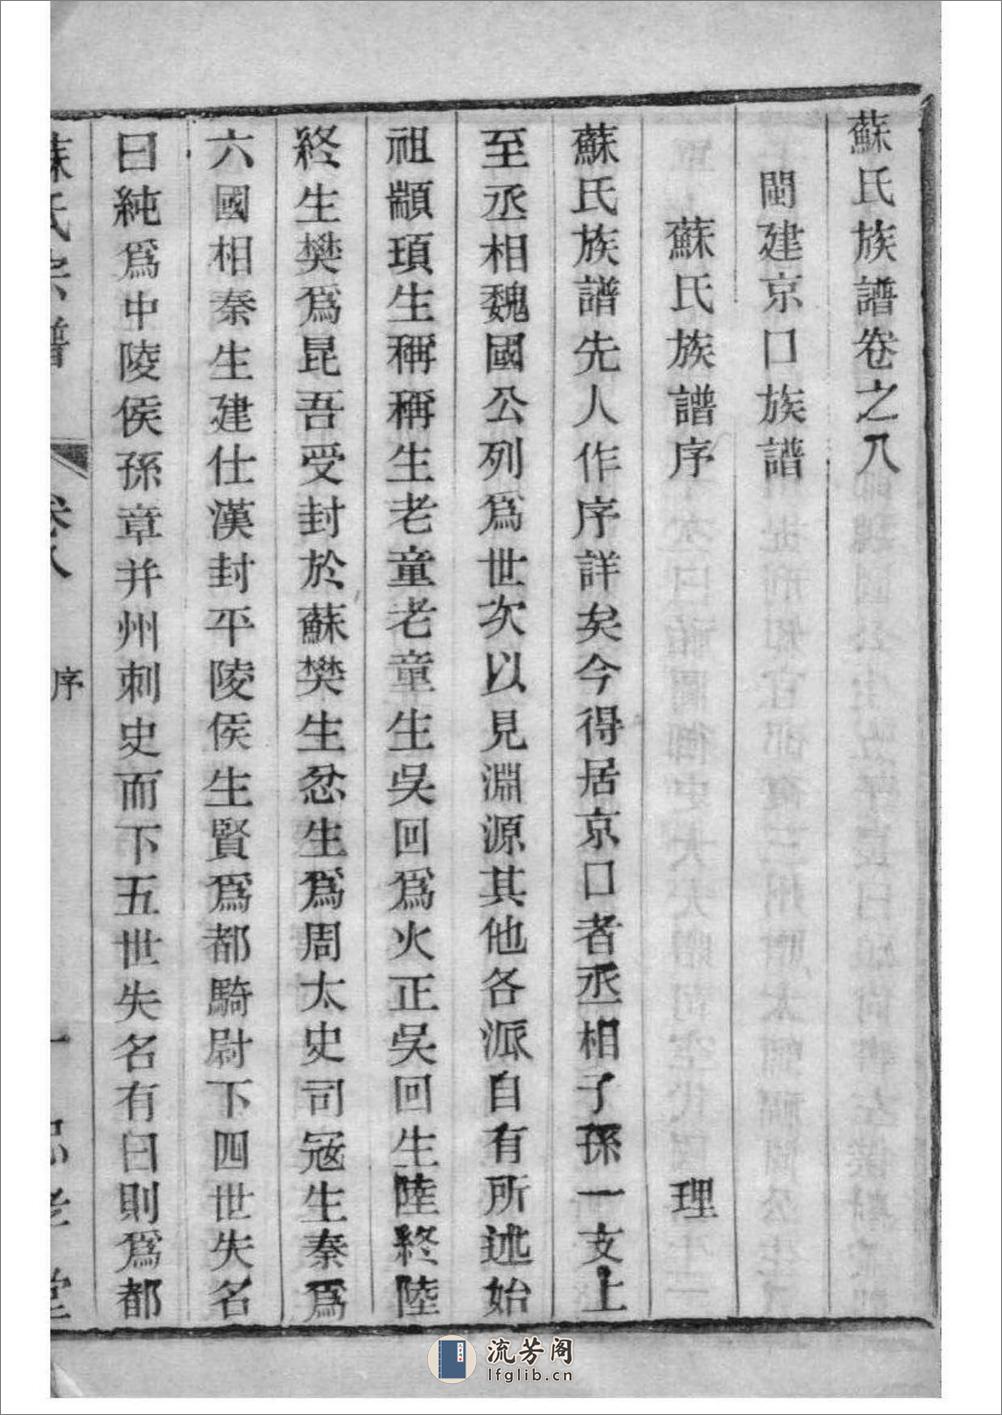 蘇氏族譜卷之八
閩建京口族譜
蘇氏族譜序 理
蘇氏族譜先人作序詳矣今得居京口者丞相子孫一支上
至丞相魏國公列爲世次以見淵源其他各派自有所述始
祖顓頊生稱稱生老童老童生吳回爲火正吳回生陸終陸
終生樊爲昆吾受封於蘇樊生忿生爲周太史司寇生秦爲
六國相秦生建仕漢封平陵侯生賢爲都騎尉下四世失名
曰純爲中陵侯孫章并州刺史而下五世失名有曰則爲都
蘇氏宗譜 卷八 序 一
流芳阁
lfglib.cn